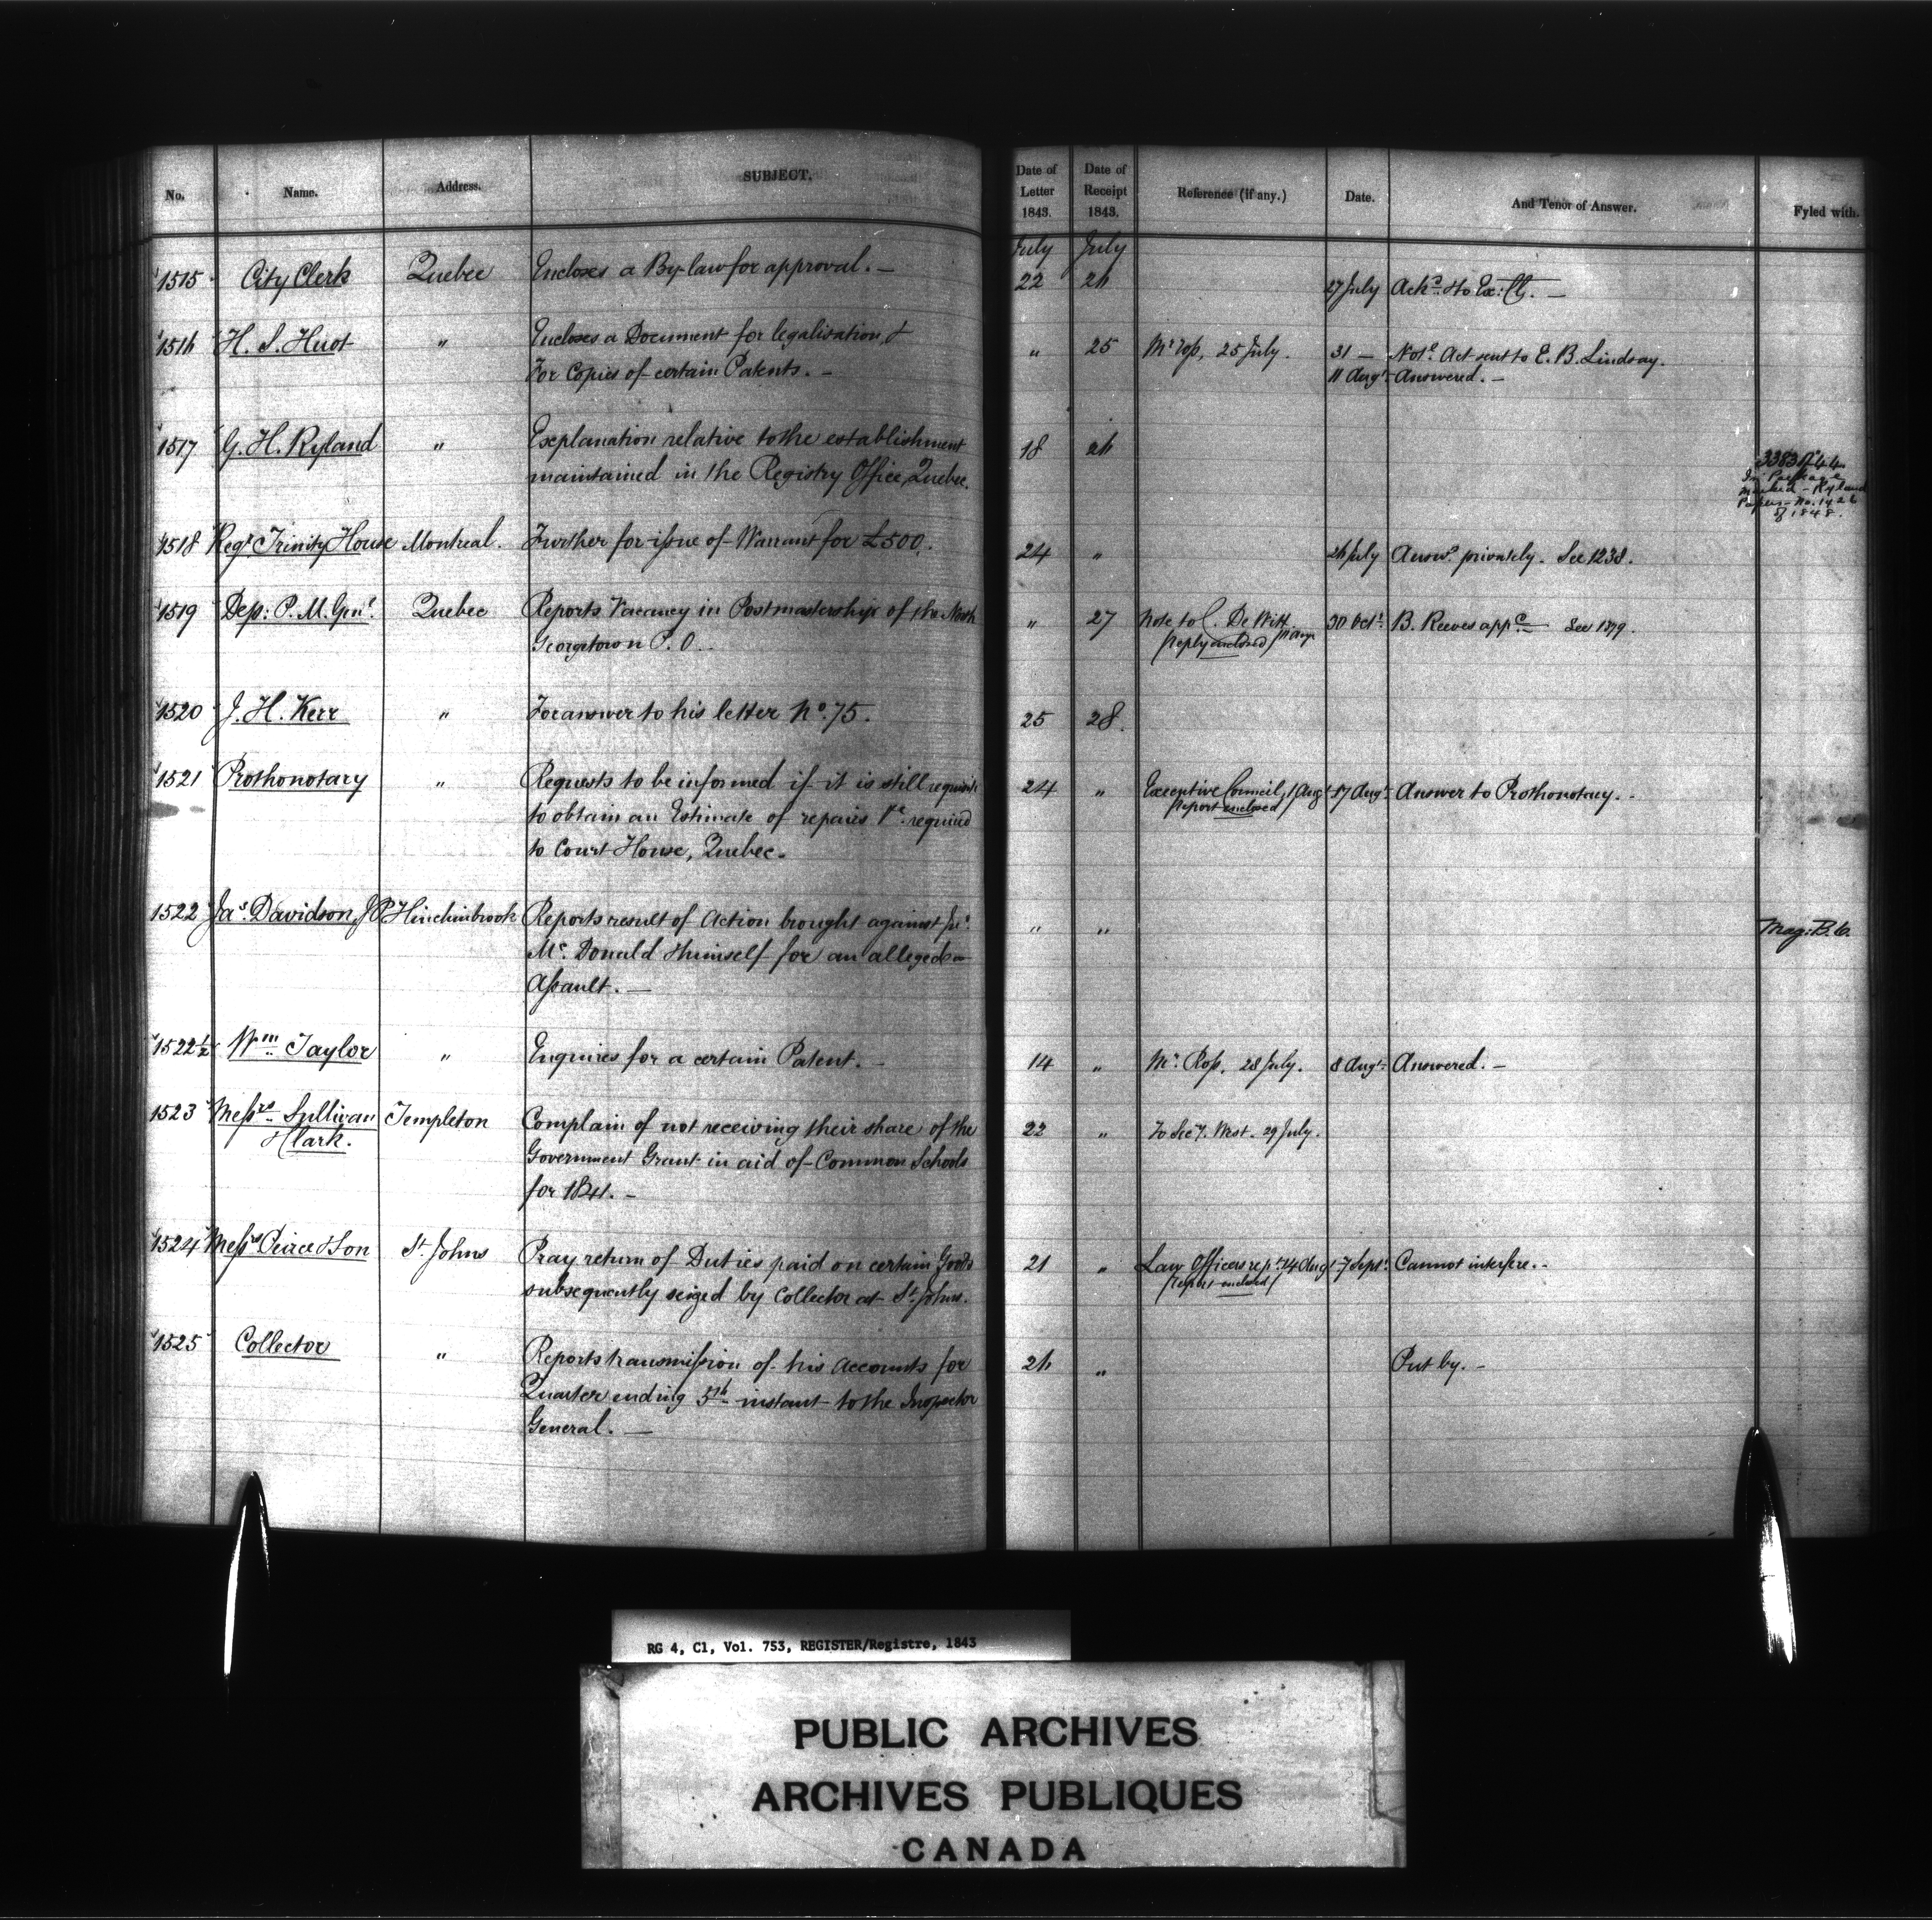 No. Name. Address. SUBJECT. Date of Letter 1843. Date of Receipt 1843. Reference (if any.) Date. And Tenor of Answer. Fyled with.
July July
1515 City Clerk Quebec Encloses a By-law for approval. — 22 26 27 July Ackd. & to Ex: Cl. —
1516 H. S. Huot " Encloses a Document for legalisation &
For Copies of certain Patents. — " 25 Mr Ross, 25 July. 31 — Notl. Act sent to E. B. Lindsay.
11 Augt. Answered. —
1517 G. H. Ryland " Explanation relative to the establishment
maintained in the Registry Office, Quebec. 18 26
In Package
marked - Ryland
Papers - No. 1426
of 1848.
1518 Regr. Trinity House Montreal. Further for issue of Warrant for £500. 24 " 26 July Answd. privately. See 1238.
1519 Dep: P. M. Genl. Quebec Reports Vacancy in Postmastership of the North
Georgetown P. O. — " 27 Note to C. De Witt
Reply enclosed 30 Octr. B. Reeves appd. — See 1379.
1520 J. H. Kerr " For answer to his letter No. 75. 25 28.
1521 Prothonotary " Requests to be informed if it is still requisite
to obtain an Estimate of repairs &ca. required
to Court House, Quebec. 24 " Executive Council, 1 Augt.
Report enclosed 17 Augt. Answer to Prothonotary. -
1522 Jas. Davidson, JP Hinchinbrook Reports result of Action brought against Jno.
Mc. Donald & himself for an alleged
Assault. — " " Mag: B. C.
1522½ Wm. Taylor " Enquires for a certain Patent. — 14 " Mr. Ross, 28 July. 8 Augt. Answered. —
1523 Messrs. Sullivan
& Clark. Templeton Complain of not receiving their share of the
Government Grant in aid of Common Schools
for 1841. — 22 " To Secy. West. 29 July.
1524 Messrs Peirce & Son St. Johns Pray return of Duties paid on certain Goods
subsequently seized by Collector at St. Johns. 21 " Law Officers rep: 14 Augt
Report enclosed 7 Septr. Cannot interfere. -
1525 Collector " Reports transmission of his Accounts for
Quarter ending 5th instant to the Inspector
General. — 26 " Put by. -
RG 4, C1, Vol. 753, REGISTER/Registre, 1843
PUBLIC ARCHIVES
ARCHIVES PUBLIQUES
CANADA